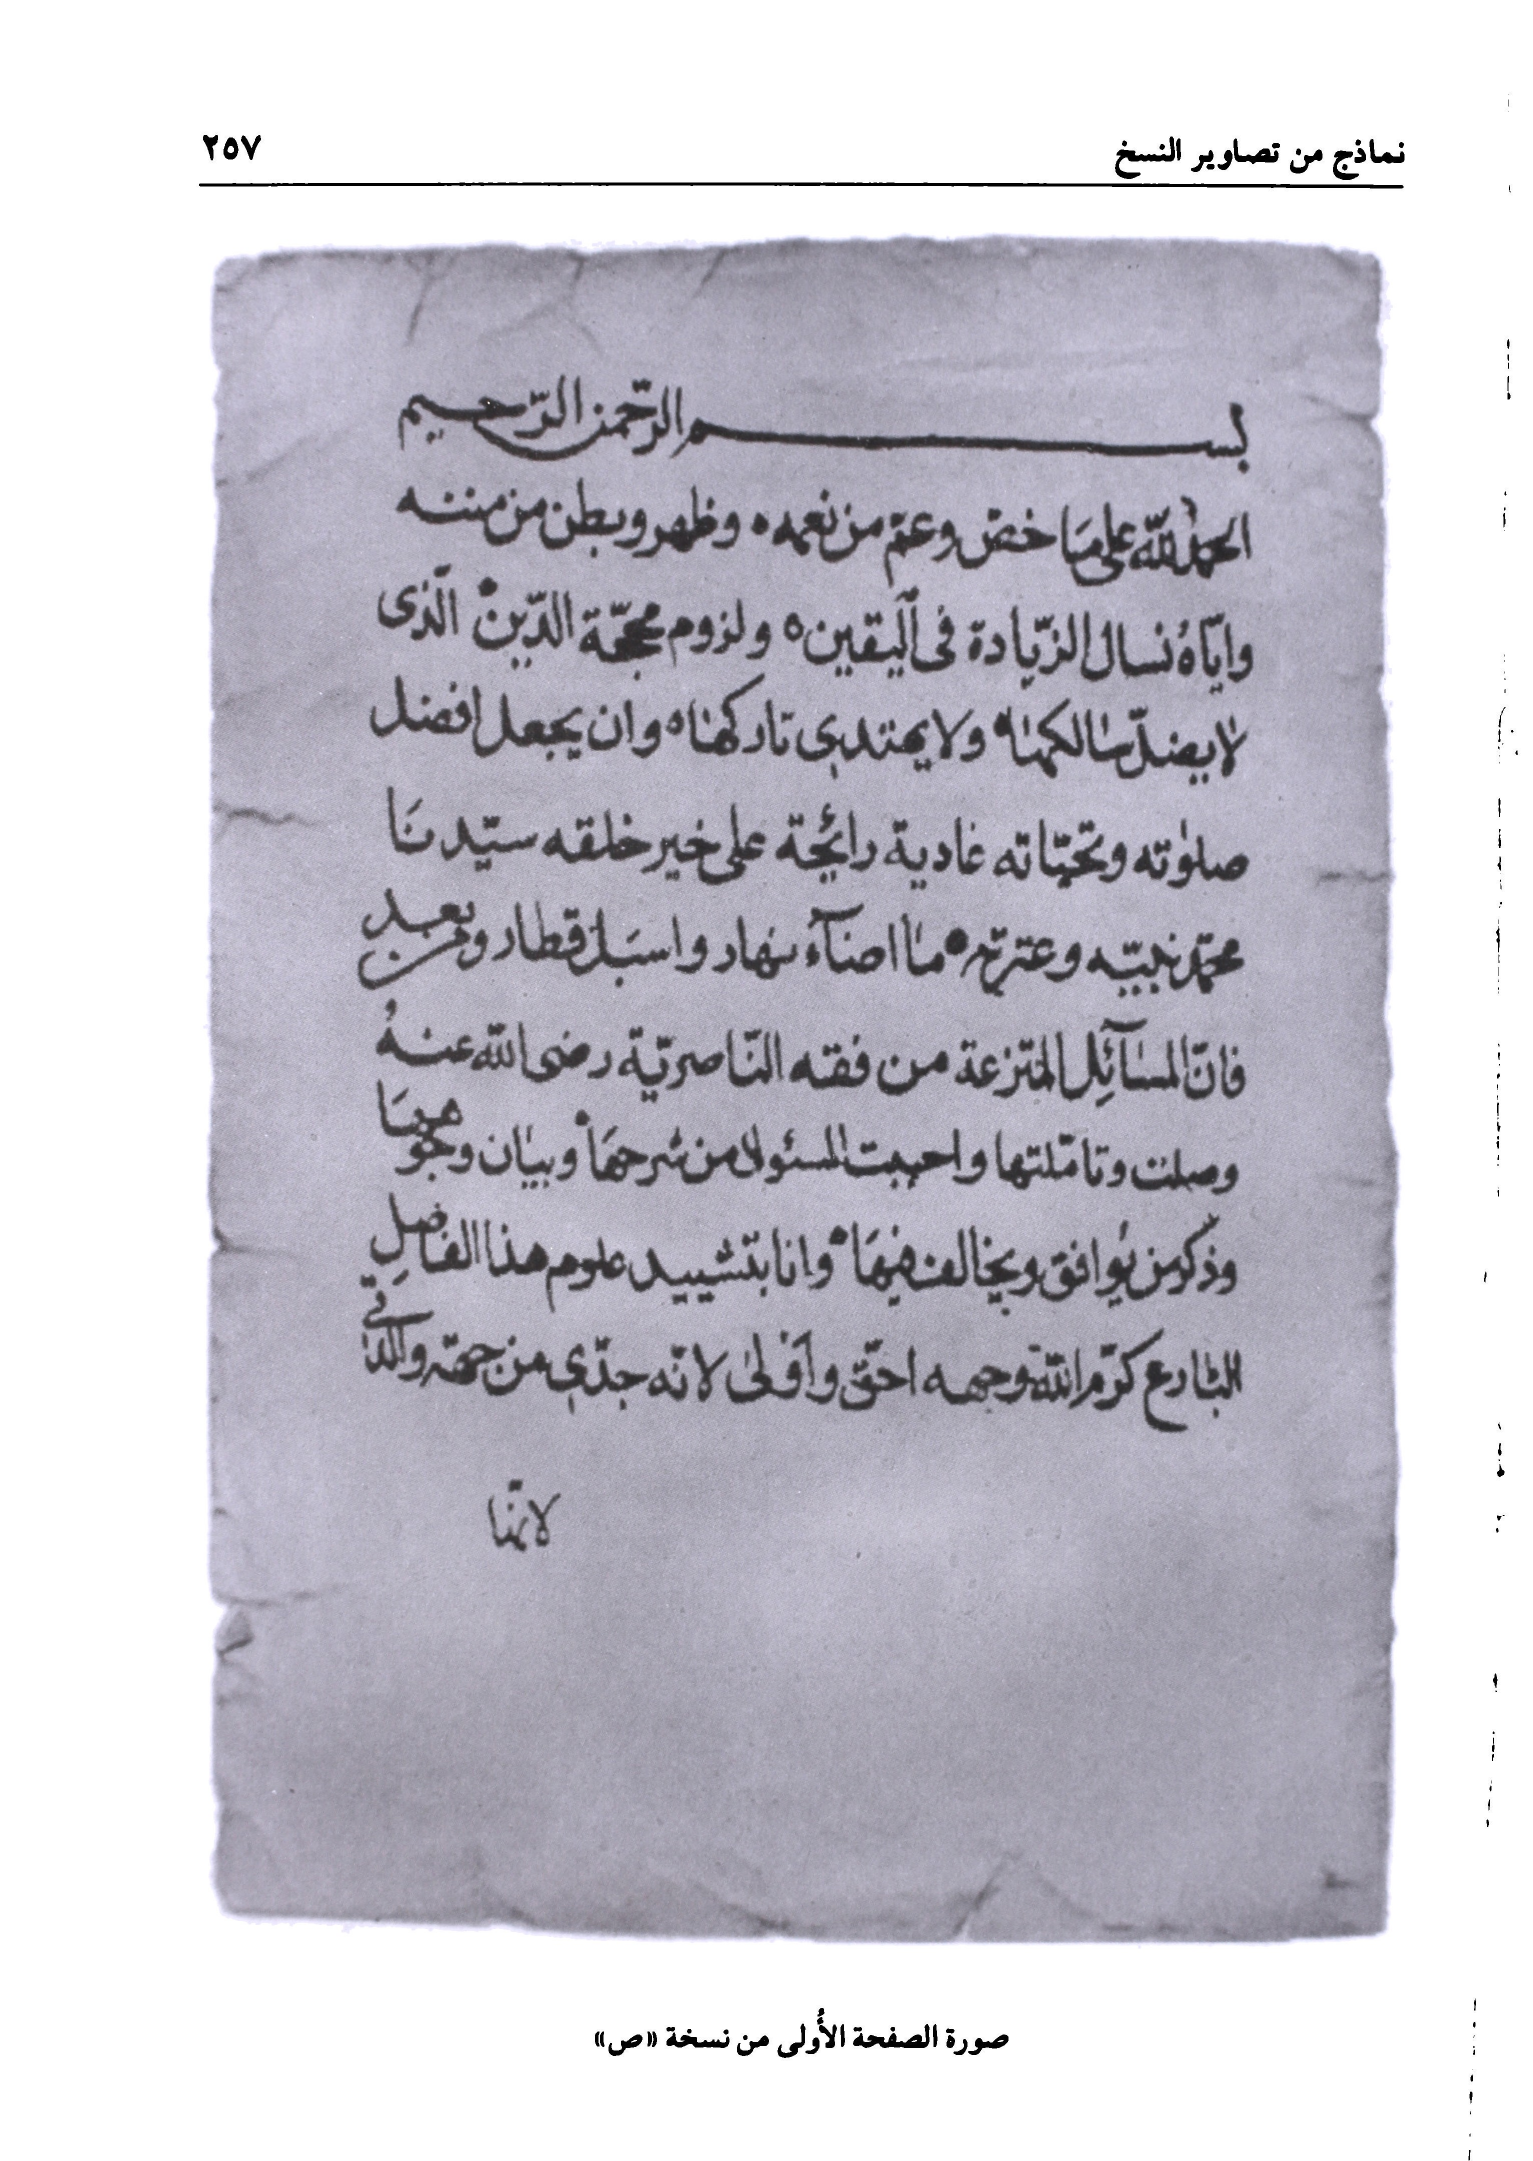 نماذج من تصاوير النسخ ٢٥٧
بسم الرّحمن الرّحيم
الحمدُ للّه على مَا خصّ وعمّ من نعمه ه وظهر وبطن من مننه
وايّاهُ نسال الزّيادة فى اليقين ه ولزوم محجّة الدّين ه الّذى
لا يضلّ سالكها ه ولا يهتدى تاركها ه وان يجعل افضل
صلوته وتحيّاته غادية رائحة على خير خلقه سيّدنَا
محمّد نبيّه وعترته ه ما اضآء نهار واسبَل قطار ومن بعد
فانّ المسآئِل المنتزعة من فقه النّاصريّة رضى اللّه عنهُ
وصلت وتامّلتها واجبت المسئول من شرحهَا ه وبيان وجوهها
وذكر من يُوافق ويخالف فيهَا ه وانا بتشييد علوم هذا الفاضلِ
البارع كرّم اللّه وجهه احقّ واَولى لانّه جدّى من جهة والدتى
لانّها
صورة الصفحة الأُولى من نسخة «ص»